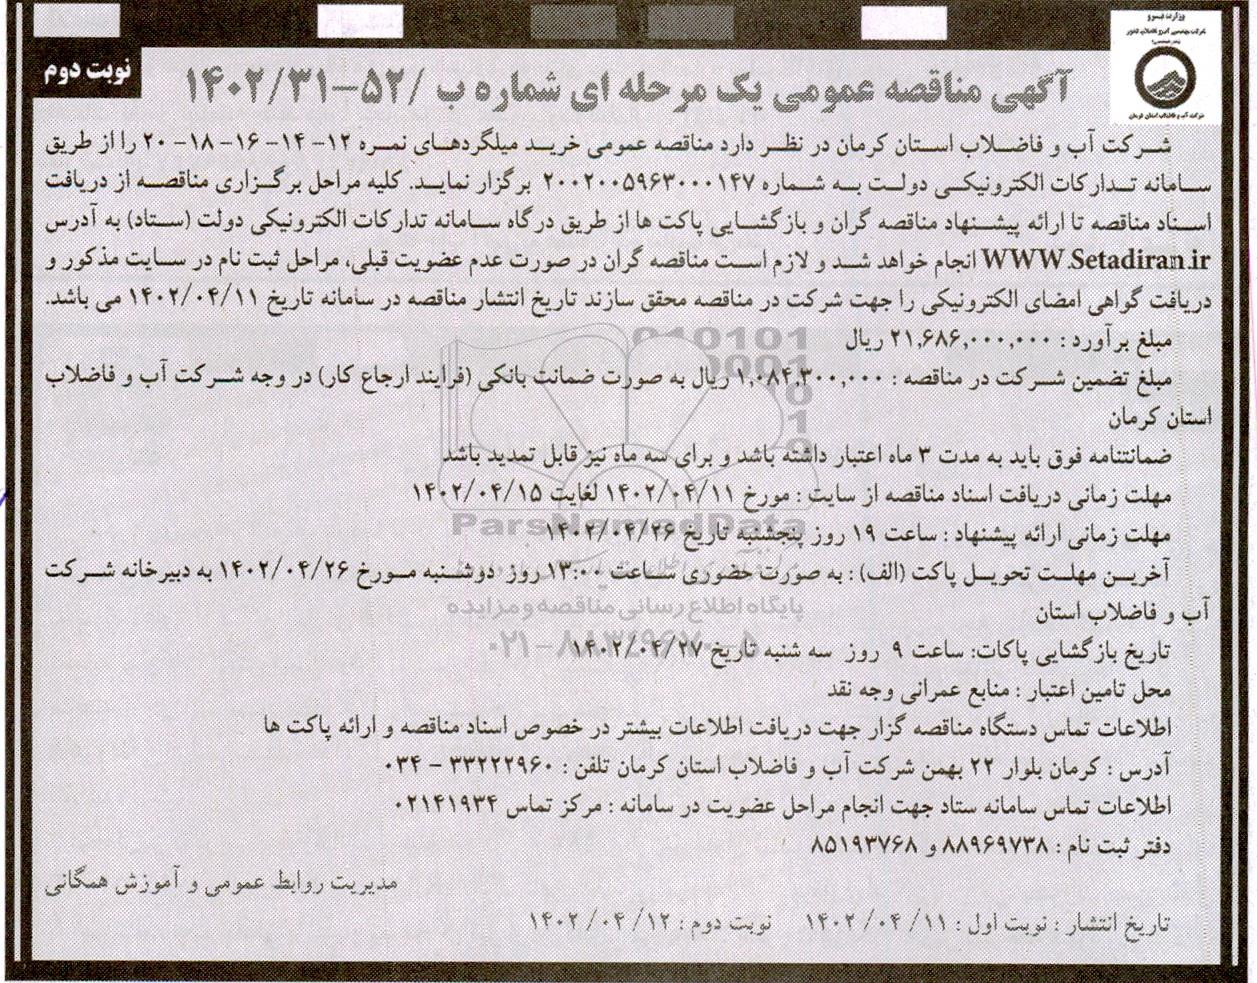 وزارت نیرو
شرکت آب و فاضلاب استان کرمان
نوبت دوم
آگهی مناقصه عمومی یک مرحله ای شماره ب /۵۲-۱۴۰۲/۳۱
شرکت آب و فاضلاب استان کرمان در نظر دارد مناقصه عمومی خرید میلگردهای نمره ۱۲- ۱۴- ۱۶- ۱۸- ۲۰ را از طریق
سامانه تدارکات الکترونیکی دولت به شماره ۲۰۰۲۰۰۵۹۶۳۰۰۰۱۴۷ برگزار نماید. کلیه مراحل برگزاری مناقصه از دریافت
اسناد مناقصه تا ارائه پیشنهاد مناقصه گران و بازگشایی پاکت ها از طریق درگاه سامانه تدارکات الکترونیکی دولت (ستاد) به آدرس
WWW.Setadiran.ir انجام خواهد شد و لازم است مناقصه گران در صورت عدم عضویت قبلی، مراحل ثبت نام در سایت مذکور و
دریافت گواهی امضای الکترونیکی را جهت شرکت در مناقصه محقق سازند تاریخ انتشار مناقصه در سامانه تاریخ ۱۴۰۲/۰۴/۱۱ می باشد.
مبلغ برآورد : ۲۱,۶۸۶,۰۰۰,۰۰۰ ریال
مبلغ تضمین شرکت در مناقصه : ۱,۰۸۴,۳۰۰,۰۰۰ ریال به صورت ضمانت بانکی (فرایند ارجاع کار) در وجه شرکت آب و فاضلاب
استان کرمان
ضمانتنامه فوق باید به مدت ۳ ماه اعتبار داشته باشد و برای سه ماه نیز قابل تمدید باشد
مهلت زمانی دریافت اسناد مناقصه از سایت : مورخ ۱۴۰۲/۰۴/۱۱ لغایت ۱۴۰۲/۰۴/۱۵
مهلت زمانی ارائه پیشنهاد : ساعت ۱۹ روز پنجشنبه تاریخ ۱۴۰۲/۰۴/۲۶
آخرین مهلت تحویل پاکت (الف) : به صورت حضوری ساعت ۱۳:۰۰ روز دوشنبه مورخ ۱۴۰۲/۰۴/۲۶ به دبیرخانه شرکت
آب و فاضلاب استان
تاریخ بازگشایی پاکات: ساعت ۹ روز سه شنبه تاریخ ۱۴۰۲/۰۴/۲۷
محل تامین اعتبار : منابع عمرانی وجه نقد
اطلاعات تماس دستگاه مناقصه گزار جهت دریافت اطلاعات بیشتر در خصوص اسناد مناقصه و ارائه پاکت ها
آدرس : کرمان بلوار ۲۲ بهمن شرکت آب و فاضلاب استان کرمان تلفن : ۳۳۲۲۲۹۶۰ - ۰۳۴
اطلاعات تماس سامانه ستاد جهت انجام مراحل عضویت در سامانه : مرکز تماس ۰۲۱۴۱۹۳۴
دفتر ثبت نام : ۸۸۹۶۹۷۳۸ و ۸۵۱۹۳۷۶۸
مدیریت روابط عمومی و آموزش همگانی
تاریخ انتشار : نوبت اول : ۱۴۰۲/۰۴/۱۱ نوبت دوم : ۱۴۰۲/۰۴/۱۲
ParsNamadData
پایگاه اطلاع رسانی مناقصه و مزایده
۰۲۱-۸۸۳۴۹۶۷۰-۵